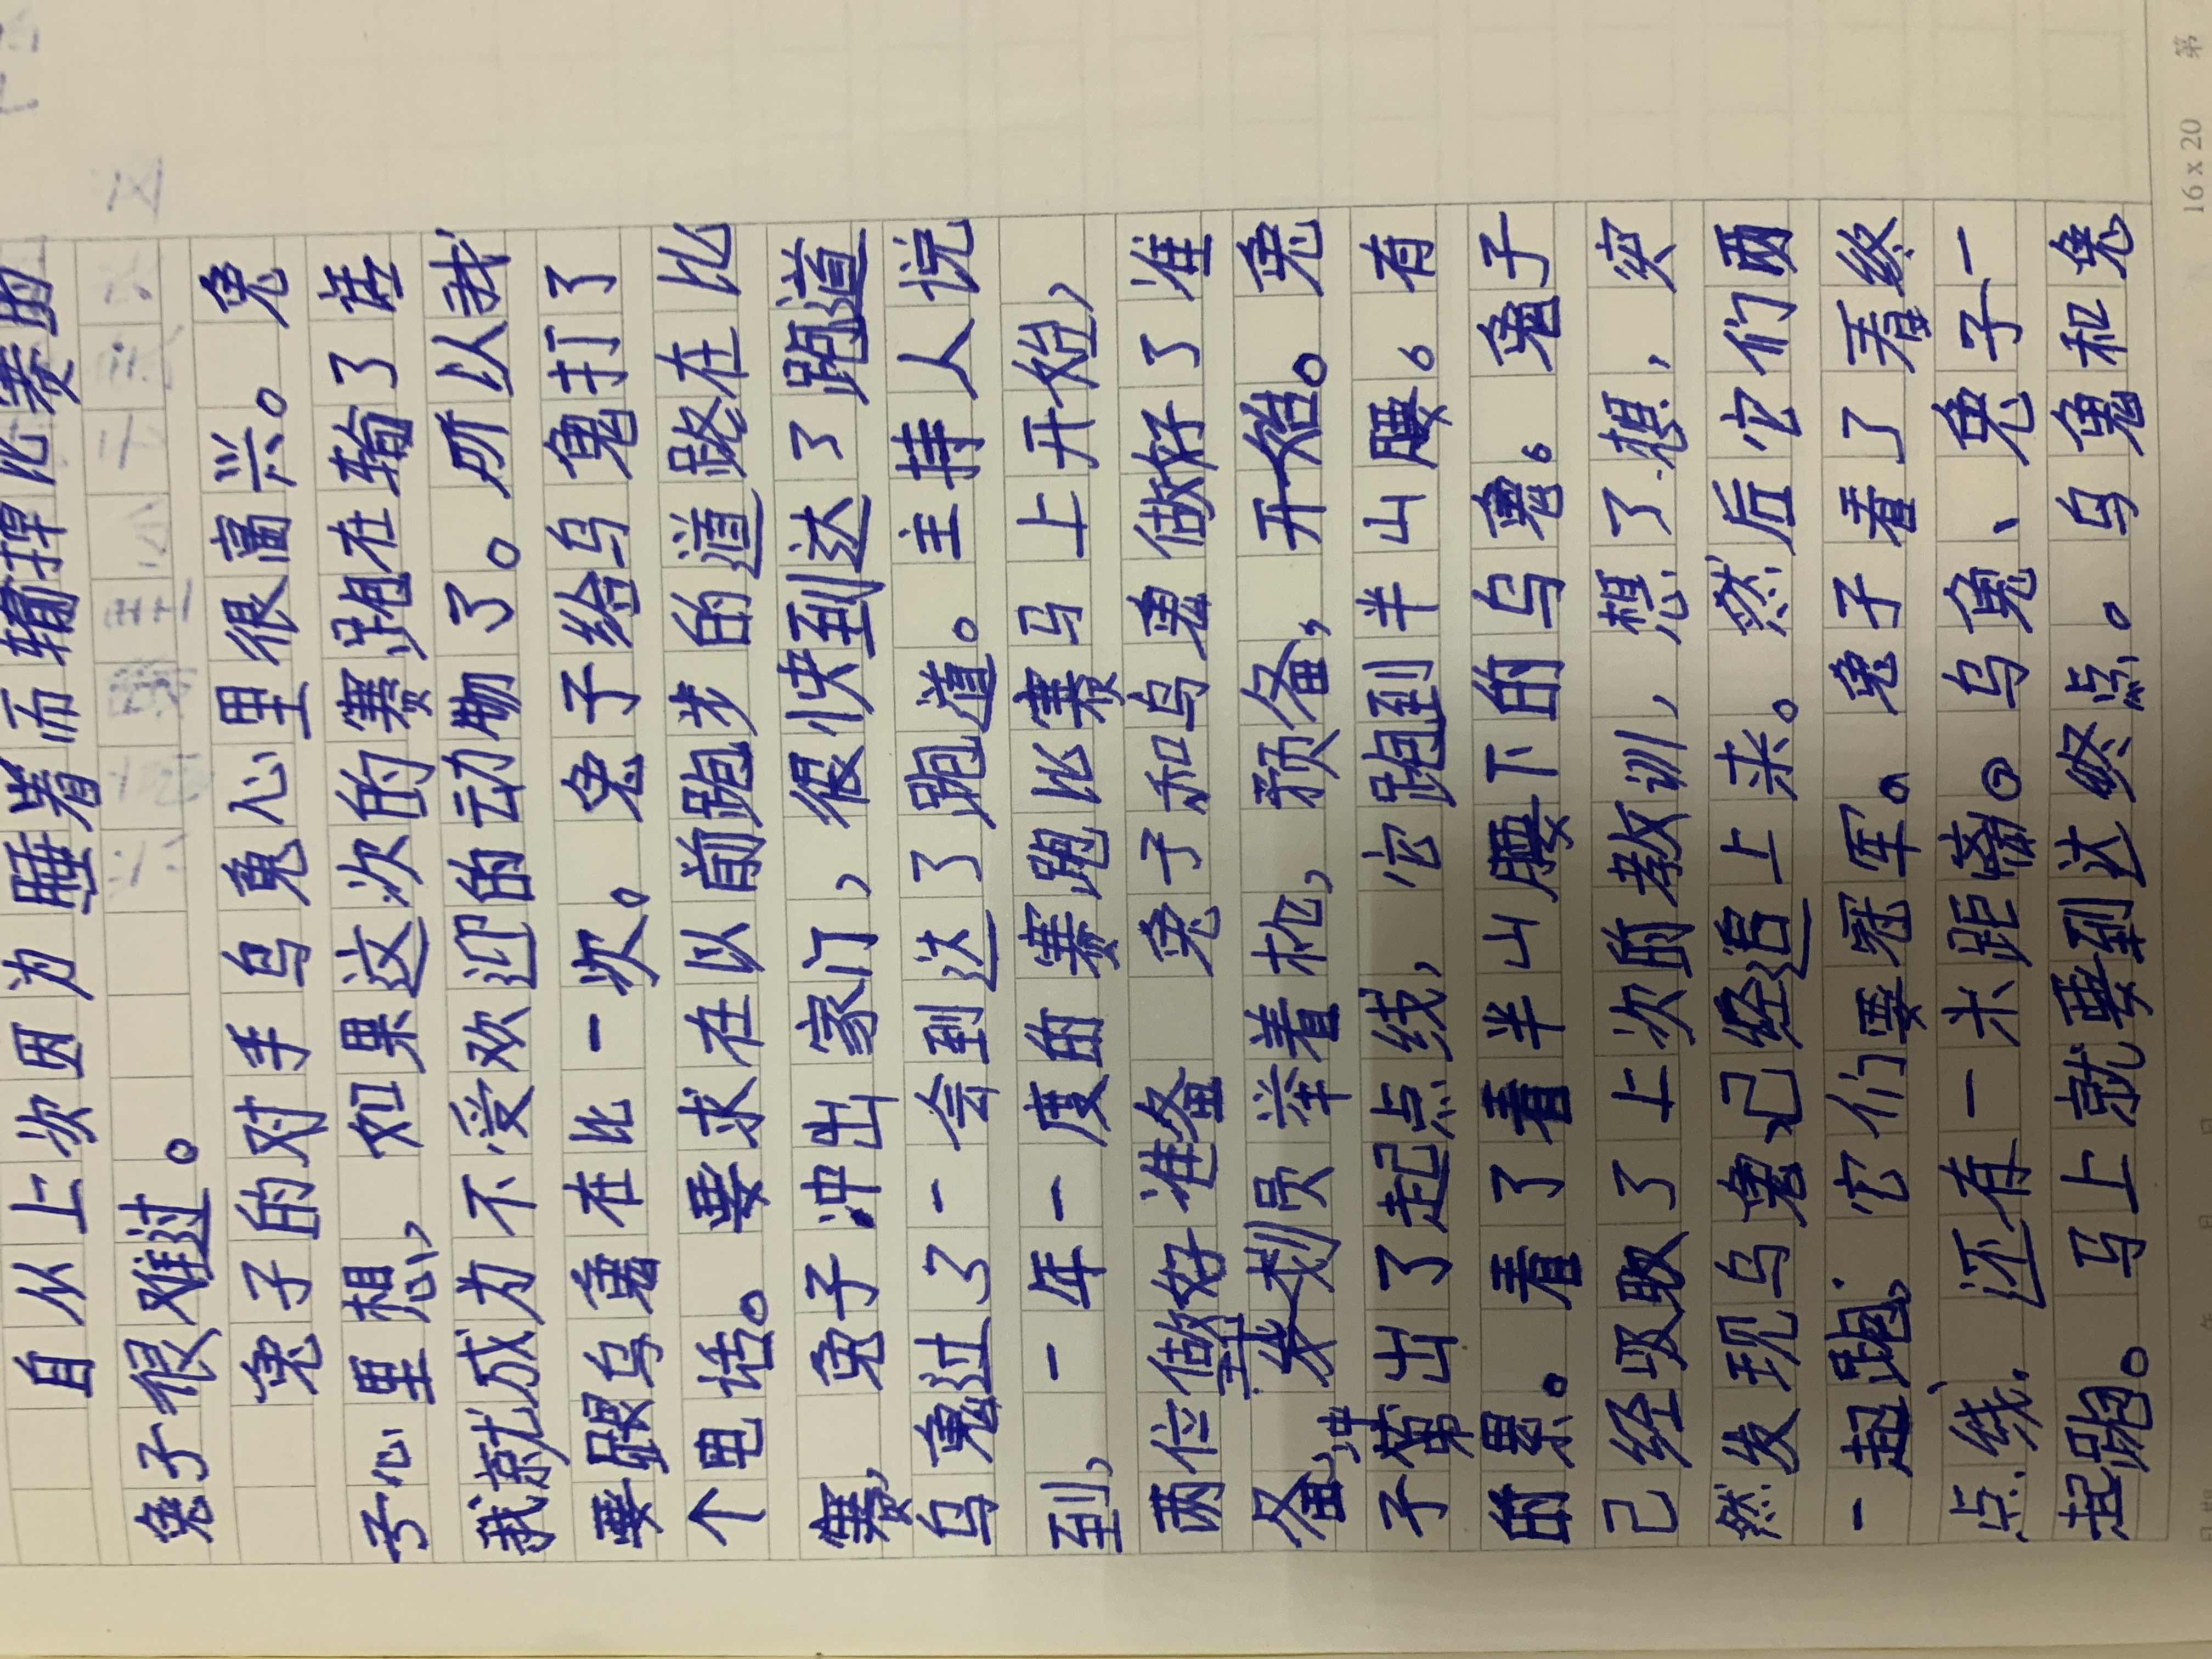 自从上次因为睡着而输掉比赛的
兔子很难过。
兔子的对手乌龟心里很高兴。兔
子心里想，如果这次的赛跑在输了话
我就成为不受欢迎的动物了。所以我
要跟乌龟在比一次。兔子给乌龟打了
个电话。要求在以前跑步的道路在比
赛，兔子冲出家门，很快到达了跑道
乌龟过了一会到达了跑道。主持人说
到，一年一度的赛跑比赛马上开始，
两位做好准备 兔子和乌龟做好了准
备，裁判员举着枪，预备，开始。兔
子第出了起点线，它跑到半山腰。有
的累。看了看半山腰下的乌龟。兔子
己经吸取了上次的教训，想了想，突
然发现乌龟已经追上来。然后它们两
一起跑，它们要冠军。兔子看了看终
点线，还有一米距离。乌龟、兔子一
起跑。马上就要到达终点。乌龟和兔
16 x 20 第